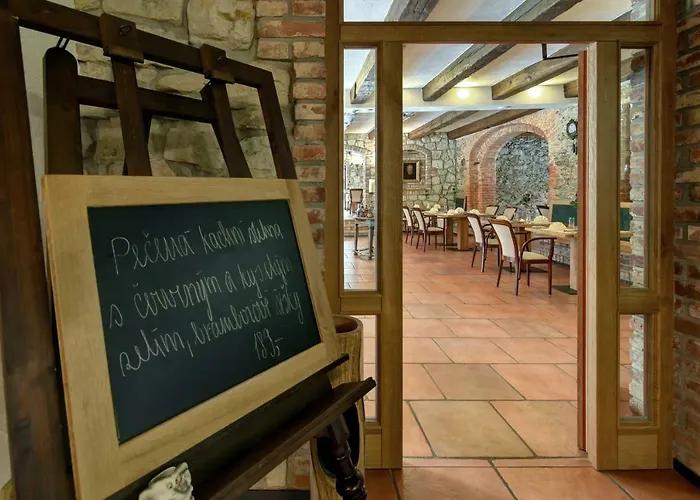 Pečená kachní stehna
s červeným a kyselým
zelím, bramborové šišky
189,-